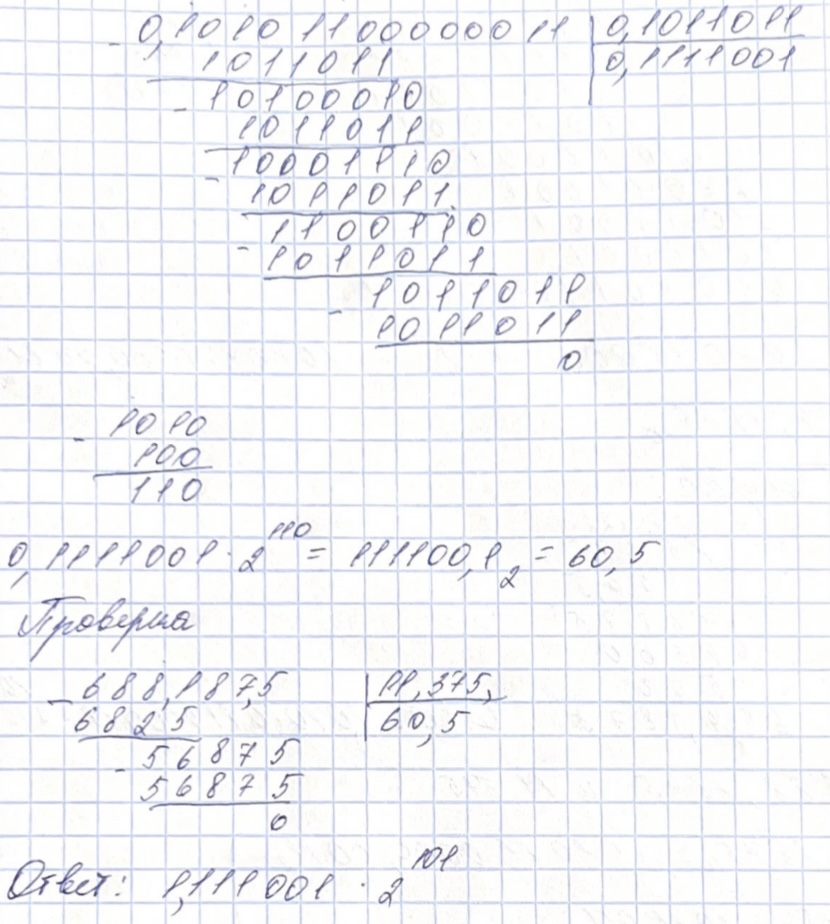 - 0,10101100000011 | 0,1011011
1011011 | 0,1111001
- 10100010
1011011
- 10001110
1011011
- 1100110
1011011
- 1011011
1011011
0
- 1010
100
110
0,1111001 · 2^110 = 111100,1₂ = 60,5
Проверка
- 688,187,5 | 11,375,
6825 | 60,5
- 56875
56875
0
Ответ: 1,111001 · 2^101